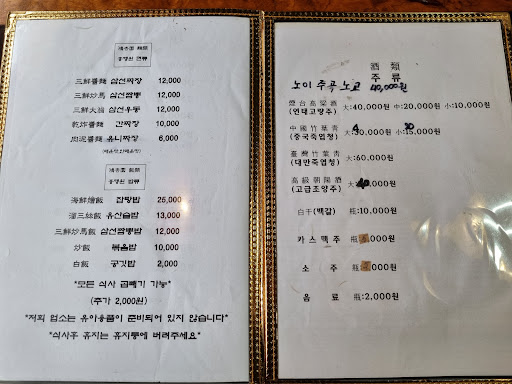 三鮮醬麵 삼선짜장 12,000
三鮮炒馬 삼선짬뽕 12,000
三鮮大滷 삼선우동 12,000
乾炸醬麵 간짜장 10,000
肉泥醬麵 유니짜장 6,000
海鮮燴飯 잡탕밥 25,000
溜三絲飯 유산슬밥 13,000
三鮮炒馬飯 삼선짬뽕밥 12,000
炒飯 볶음밥 10,000
白飯 공깃밥 2,000
*모든 식사 곱빼기 가능*
(추가 2,000원)
*저희 업소는 유아용품이 준비되어 있지 않습니다*
*식사후 휴지는 휴지통에 버려주세요*
酒類
주류
노이 주곡 노교 40,000원
煙台高粱酒 大:40,000원 中:20,000원 小:10,000원
(연태고량주)
中國竹葉青 大:30,000원 小:15,000원
(중국죽엽청)
臺灣竹葉青 大:60,000원
(대만죽엽청)
高級朝陽酒 大:
(고급조양주)
白干(백갈) 瓶:10,000원
카스맥주 瓶: ,000원
소주 瓶: ,000원
음료 瓶:2,000원